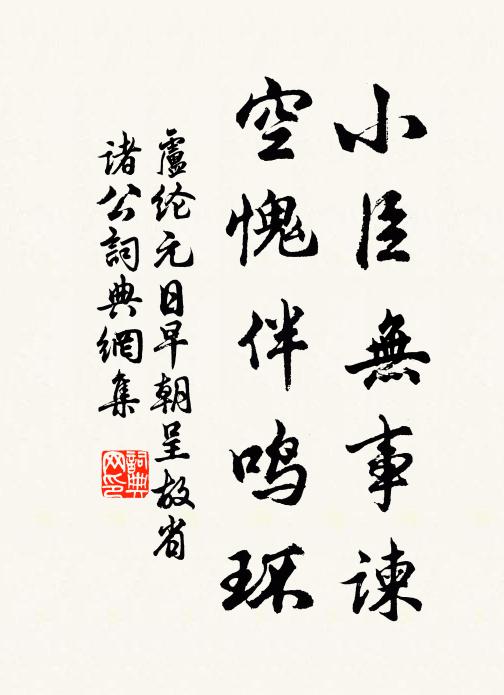 小臣無事諫
空愧伴鸣环
盧纶元日早朝呈故省
諸公詞典網集
詞典
网印